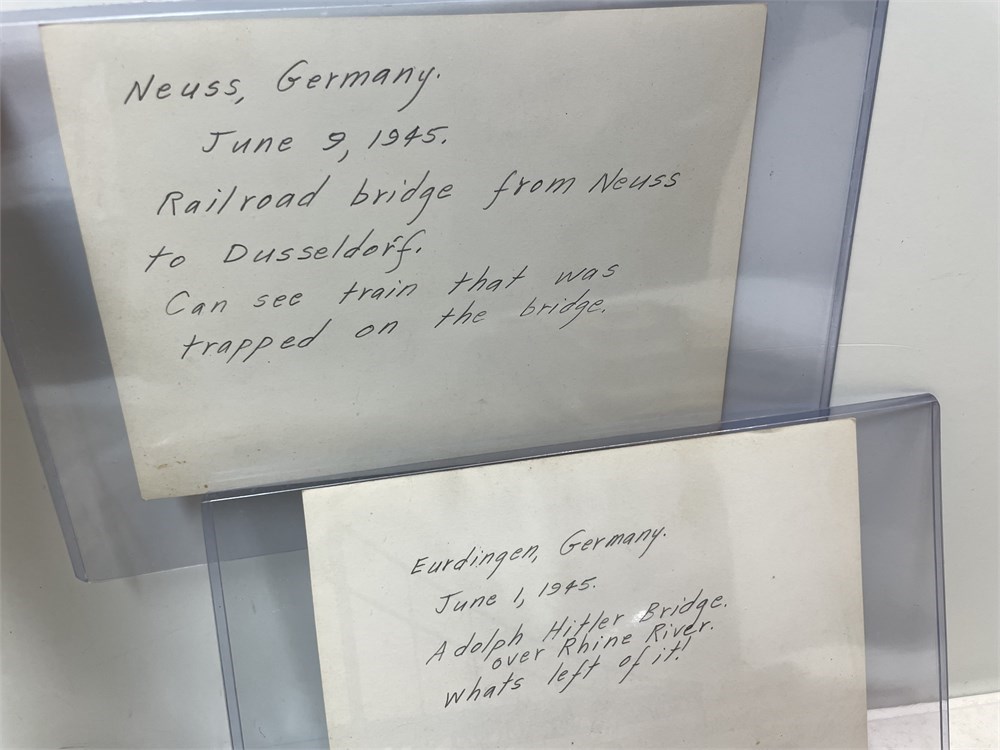 Neuss, Germany.
June 9, 1945.
Railroad bridge from Neuss
to Dusseldorf.
Can see train that was
trapped on the bridge.
Eurdingen, Germany.
June 1, 1945.
Adolph Hitler Bridge.
over Rhine River.
whats left of it!